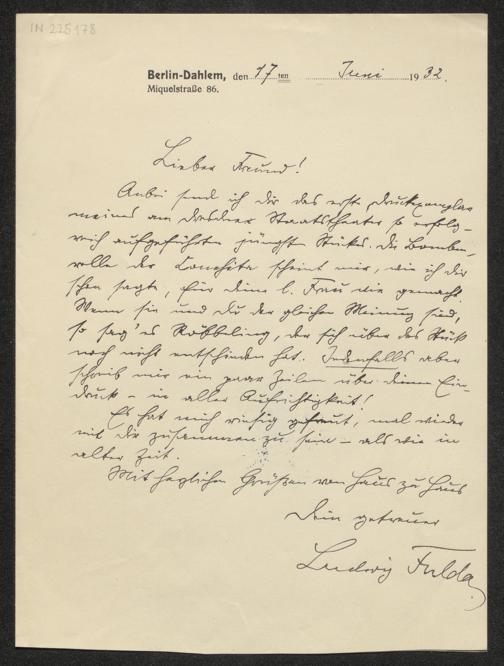 IN 225178
Berlin-Dahlem, den 17ten Juni 1932.
Miquelstraße 86.
Lieber Freund!
Anbei send ich dir das erste Druckexemplar
meines am Dresdner Staatstheater so erfolg-
reich aufgeführten jüngsten Stücks. Die Bomben-
rolle der Conchita scheint mir, wie ich dir
schon sagte, für deine l. Frau wie gemacht.
Wenn sie und Du der gleichen Meinung sind,
so sag's Röbbeling, der sich über das Stück
noch nicht entschieden hat. Jedenfalls aber
schreib mir ein paar Zeilen über deinen Ein-
druck – in aller Aufrichtigkeit!
Es hat mich riesig gefreut, mal wieder
mit dir zusammen zu sein – als wie in
alter Zeit.
Mit herzlichen Grüßen von Haus zu Haus
Dein getreuer
Ludwig Fulda